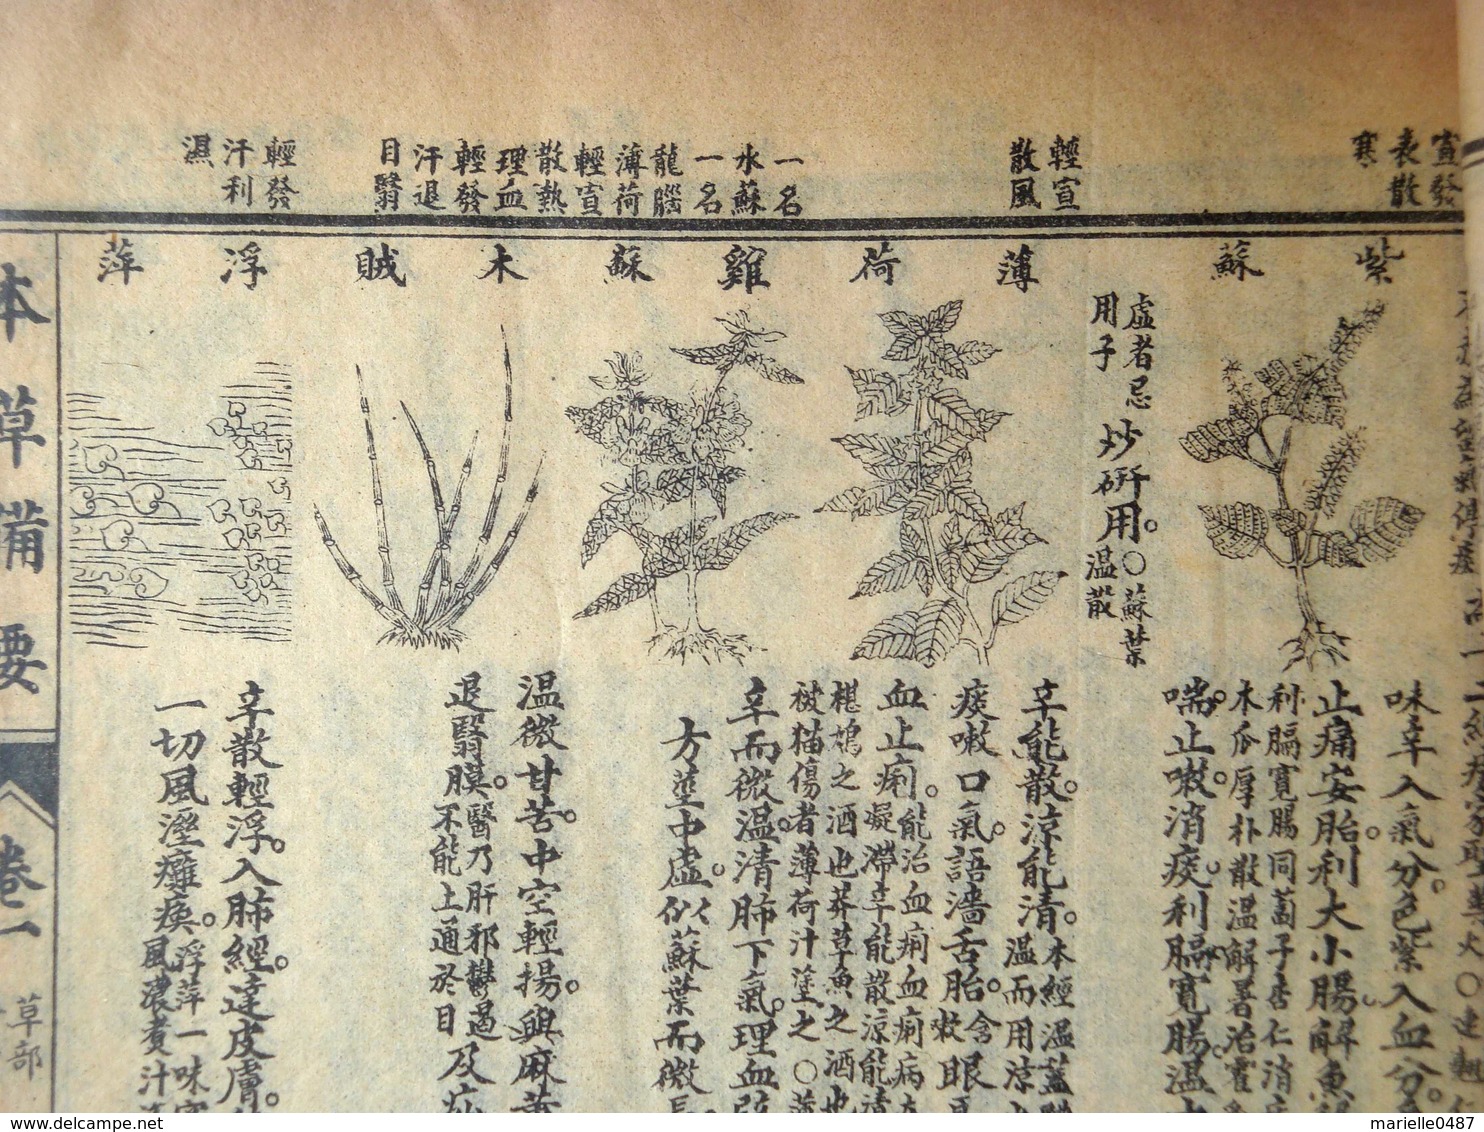 宣發
表散
寒
輕宣
散風
一名
水蘇
一名
龍腦
薄荷
輕宣
散熱
理血
輕發
汗退
目翳
輕發
汗利
濕
紫蘇
薄荷
雞蘇
木賊
浮萍
味辛入氣分。色紫入血分。
止痛安胎。利大小腸。解魚
利膈寬腸同蔔子杏仁消
木瓜厚朴散溫解暑治霍
喘。止嗽。消痰。利膈。寬腸。溫
虛者忌
用子
炒研用。○
蘇葉
溫散
辛能散。涼能清。
本經溫蓋
溫而用涼
痰嗽口氣。語濇舌胎。
含漱
眼
血止痢。
能治血痢血痢病
凝滯辛能散涼能清
之酒也莽草魚之酒也
被猫傷者薄荷汁塗之○薄
辛而微溫。清肺下氣。理血
方莖中虛。似蘇葉而微長
溫微甘苦。中空輕揚。與麻黃
退翳膜。
翳乃肝邪鬱遏
不能上通於目
及疝
辛散輕浮。入肺經。達皮膚。
一切風溼癱瘓。
浮萍一味
風濃煮汁
本草備要
卷一
草部
marielle0487